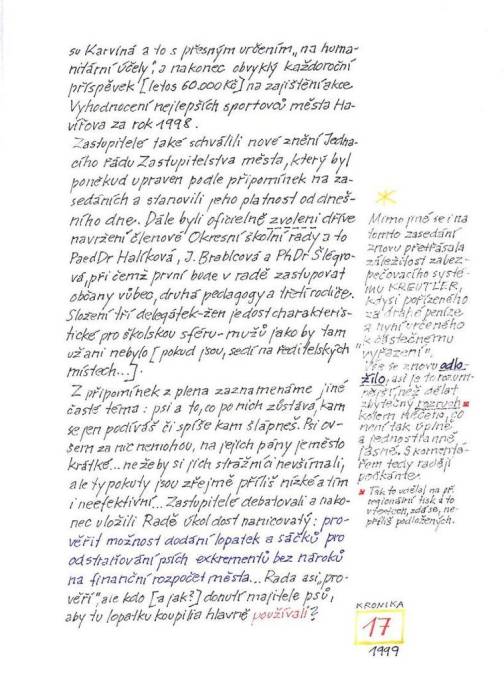 su Karviná a to s přesným určením „na huma-
nitární účely“; a nakonec obvyklý každoroční
příspěvek [letos 60.000 Kč] na zajištění akce
Vyhodnocení nejlepších sportovců města Ha-
vířova za rok 1998.
Zastupitelé také schválili nové znění Jedna-
cího řádu Zastupitelstva města, který byl
poněkud upraven podle připomínek na za-
sedáních a stanovili jeho platnost od dneš-
ního dne. Dále byli oficielně zvoleni dříve
navržení členové Okresní školní rady a to
PaedDr Halíková, J. Brablcová a PhDr Šlégro-
vá, při čemž první bude v radě zastupovat
občany vůbec, druhá pedagogy a třetí rodiče.
Složení tří delegátek-žen je dost charakteris-
tické pro školskou sféru - mužů jako by tam
už ani nebylo [pokud jsou, sedí na ředitelských
místech...].
Z připomínek z plena zaznamenáme jiné
časté téma: psi a to, co po nich zůstává, kam
se jen podíváš či spíše kam šlápneš. Psi ov-
šem za nic nemohou, na jejich pány je město
krátké... ne že by si jich strážníci nevšímali,
ale ty pokuty jsou zřejmě příliš nízké a tím
i neefektivní... Zastupitelé debatovali a nako-
nec uložili Radě úkol dost naricovatý: pro-
věřit možnost dodání lopatek a sáčků pro
odstraňování psích exkrementů bez nároků
na finanční rozpočet města... Rada asi „pro-
věří“, ale kdo [a jak?] donutí majitele psů,
aby tu lopatku koupili a hlavně používali?
Mimo jiné se i na
tomto zasedání
znovu přetřásala
záležitost zabez-
pečovacího systé-
mu KREUTLER,
kdysi pořízeného
za drahé peníze
a nyní určeného
k částečnému
„vyřazení“.
Vše se znovu odlo-
žilo, asi je to rozum-
nější, než dělat
zbytečný rozruch
kolem něčeho, co
není tak úplně
a jednostranně
jasné. S komentá-
řem tedy raději
počkáme.
Tak to udělal na př.
regionální tisk a to
v textech, zdá se, ne-
příliš podložených.
KRONIKA
17
1999